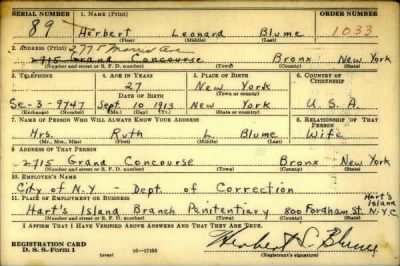 SERIAL NUMBER 1. NAME (Print) ORDER NUMBER
89 Herbert Leonard Blume 1033
(First) (Middle) (Last)
2. ADDRESS (Print) 2775 Morris Ave
2715 Grand Concourse Bronx New York
(Number and street or R. F. D. number) (Town) (County) (State)
3. TELEPHONE 4. AGE IN YEARS 5. PLACE OF BIRTH 6. COUNTRY OF CITIZENSHIP
27 New York
(Town or county)
Se-3-9747 Sept. 10 1913 New York U.S.A.
(Exchange) (Number) (Mo.) (Day) (Yr.) (State or country)
7. NAME OF PERSON WHO WILL ALWAYS KNOW YOUR ADDRESS 8. RELATIONSHIP OF THAT PERSON
Mrs. Ruth L. Blume Wife
(Mr., Mrs., Miss) (First) (Middle) (Last)
9. ADDRESS OF THAT PERSON
2715 Grand Concourse Bronx New York
(Number and street or R. F. D. number) (Town) (County) (State)
10. EMPLOYER'S NAME
City of N.Y. - Dept. of Correction
11. PLACE OF EMPLOYMENT OR BUSINESS Hart's Island
Hart's Island Branch Penitentiary 800 Fordham St. N.Y.C
(Number and street or R. F. D. number) (Town) (County) (State)
I AFFIRM THAT I HAVE VERIFIED ABOVE ANSWERS AND THAT THEY ARE TRUE.
REGISTRATION CARD
D. S. S. Form 1 (over) 16-17105 Herbert L. Blume
(Registrant's signature)